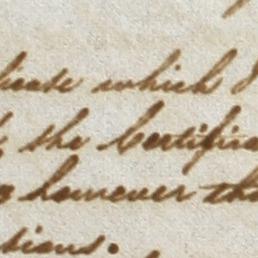 which
the Certific
however tha
tions.